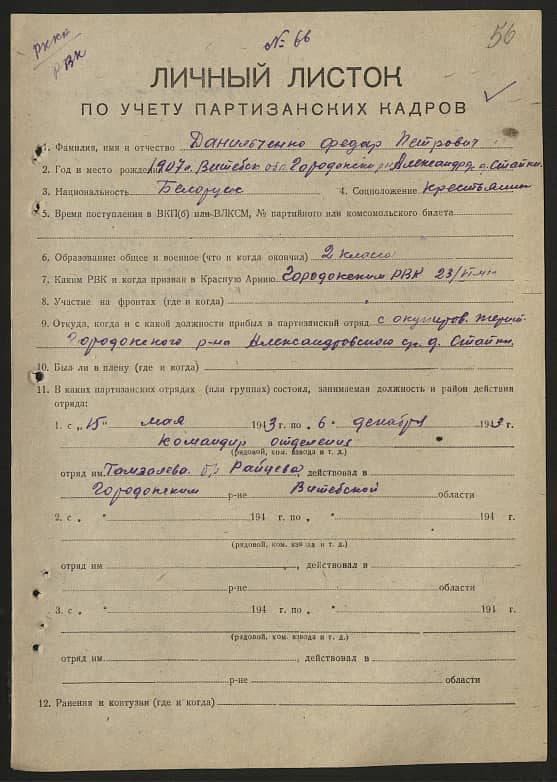 № 66
56
РККА
РВК
ЛИЧНЫЙ ЛИСТОК
ПО УЧЕТУ ПАРТИЗАНСКИХ КАДРОВ
1. Фамилия, имя и отчество Данильченко Федар Петрович
2. Год и место рождения 1907 г. Витебск обл. Городокский Александр. д. Стайки
3. Национальность Белорус 4. Соцположение Крестьянин
5. Время поступления в ВКП(б) или ВЛКСМ, № партийного или комсомольского билета
6. Образование: общее и военное (что и когда окончил) 2 класса
7. Каким РВК и когда призван в Красную Армию Городокским РВК 23/
8. Участие на фронтах (где и когда) -
9. Откуда, когда и с какой должности прибыл в партизанский отряд с окупиров.
Городокского р-на Александровской д. Стайки.
10. Был ли в плену (где и когда)
11. В каких партизанских отрядах (или группах) состоял, занимаемая должность и район действия
отряда:
1. с „15" мая 1943 г. по „6" декабря 1943 г.
Командир отделения
(рядовой, ком. взвода и т. д.)
отряд им. Райцева, действовал в
Городокским р-не Витебской области
2. с „ " 194 г. по „ " 194 г.
(рядовой, ком. взвода и т. д.)
отряд им , действовал в
р-не области
3. с „ " 194 г. по „ " 194 г.
(рядовой, ком. взвода и т. д.)
отряд им , действовал в
р-не области
12. Ранения и контузии (где и когда)